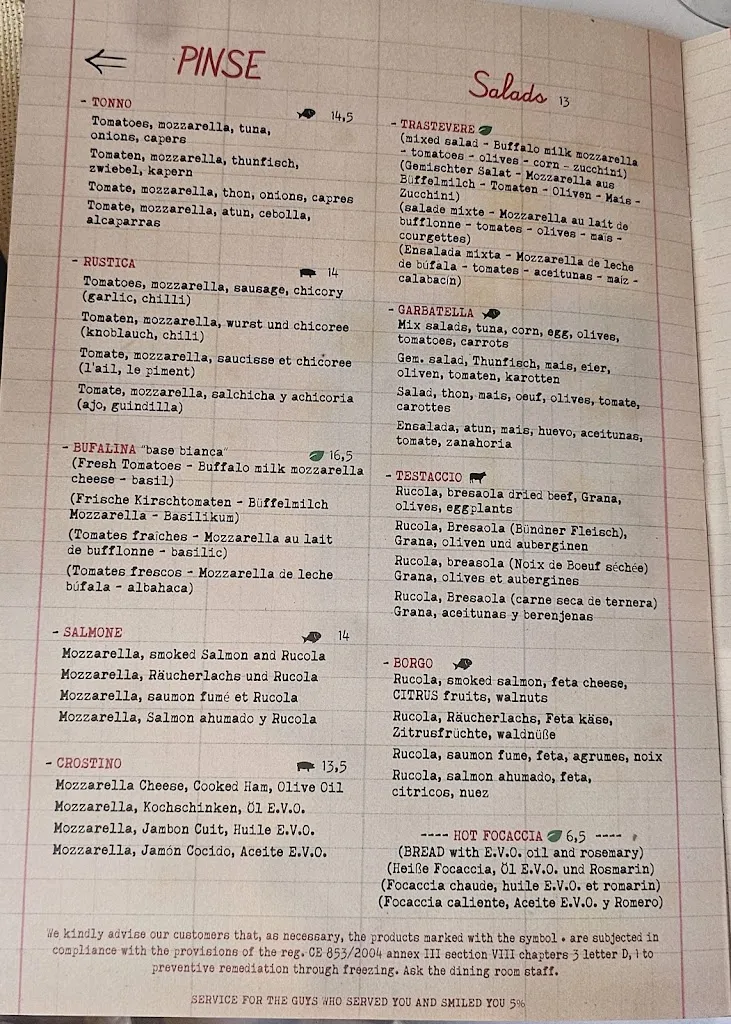 PINSE
- TONNO 14,5
Tomatoes, mozzarella, tuna,
onions, capers
Tomaten, mozzarella, thunfisch,
zwiebel, kapern
Tomate, mozzarella, thon, onions, capres
Tomate, mozzarella, atun, cebolla,
alcaparras
- RUSTICA 14
Tomatoes, mozzarella, sausage, chicory
(garlic, chilli)
Tomaten, mozzarella, wurst und chicoree
(knoblauch, chili)
Tomate, mozzarella, saucisse et chicoree
(l'ail, le piment)
Tomate, mozzarella, salchicha y achicoria
(ajo, guindilla)
- BUFALINA "base bianca" 16,5
(Fresh Tomatoes - Buffalo milk mozzarella
cheese - basil)
(Frische Kirschtomaten - Büffelmilch
Mozzarella - Basilikum)
(Tomates fraîches - Mozzarella au lait
de bufflonne - basilic)
(Tomates frescos - Mozzarella de leche
búfala - albahaca)
- SALMONE 14
Mozzarella, smoked Salmon and Rucola
Mozzarella, Räucherlachs und Rucola
Mozzarella, saumon fumé et Rucola
Mozzarella, Salmon ahumado y Rucola
- CROSTINO 13,5
Mozzarella Cheese, Cooked Ham, Olive Oil
Mozzarella, Kochschinken, Öl E.V.O.
Mozzarella, Jambon Cuit, Huile E.V.O.
Mozzarella, Jamón Cocido, Aceite E.V.O.
Salads 13
- TRASTEVERE
(mixed salad - Buffalo milk mozzarella
- tomatoes - olives - corn - zucchini)
(Gemischter Salat - Mozzarella aus
Büffelmilch - Tomaten - Oliven - Mais -
Zucchini)
(salade mixte - Mozzarella au lait de
bufflonne - tomates - olives - maïs -
courgettes)
(Ensalada mixta - Mozzarella de leche
de búfala - tomates - aceitunas - maíz -
calabacín)
- GARBATELLA
Mix salads, tuna, corn, egg, olives,
tomatoes, carrots
Gem. salad, Thunfisch, mais, eier,
oliven, tomaten, karotten
Salad, thon, mais, oeuf, olives, tomate,
carottes
Ensalada, atun, mais, huevo, aceitunas,
tomate, zanahoria
- TESTACCIO
Rucola, bresaola dried beef, Grana,
olives, eggplants
Rucola, Bresaola (Bündner Fleisch),
Grana, oliven und auberginen
Rucola, breasola (Noix de Boeuf séchée)
Grana, olives et aubergines
Rucola, Bresaola (carne seca de ternera)
Grana, aceitunas y berenjenas
- BORGO
Rucola, smoked salmon, feta cheese,
CITRUS fruits, walnuts
Rucola, Räucherlachs, Feta käse,
Zitrusfrüchte, waldnüße
Rucola, saumon fume, feta, agrumes, noix
Rucola, salmon ahumado, feta,
citricos, nuez
---- HOT FOCACCIA 6,5 ----
(BREAD with E.V.O. oil and rosemary)
(Heiße Focaccia, Öl E.V.O. und Rosmarin)
(Focaccia chaude, huile E.V.O. et romarin)
(Focaccia caliente, Aceite E.V.O. y Romero)
We kindly advise our customers that, as necessary, the products marked with the symbol • are subjected in
compliance with the provisions of the reg. CE 853/2004 annex III section VIII chapters 3 letter D, 1 to
preventive remediation through freezing. Ask the dining room staff.
SERVICE FOR THE GUYS WHO SERVED YOU AND SMILED YOU 5%